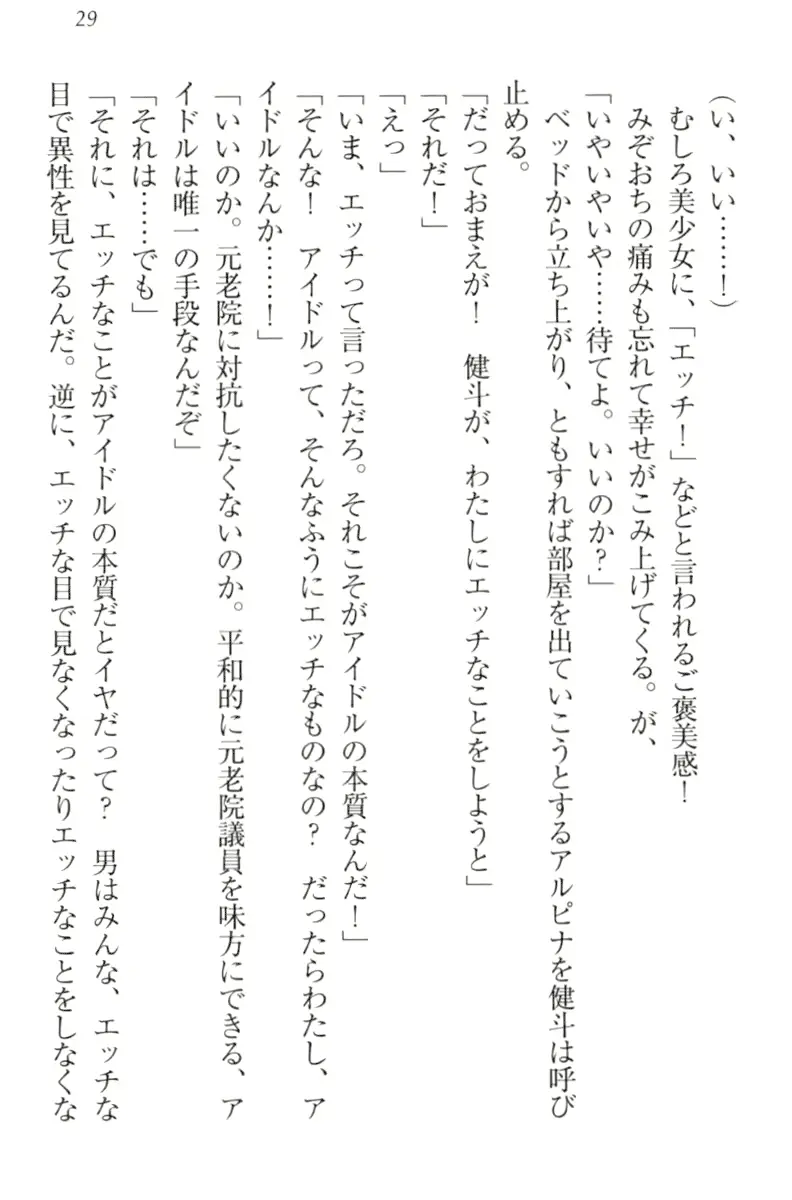 29
（い、いい……！）
むしろ美少女に、「エッチ！」などと言われるご褒美感！
みぞおちの痛みも忘れて幸せがこみ上げてくる。が、
「いやいやいや……待てよ。いいのか？」
ベッドから立ち上がり、ともすれば部屋を出ていこうとするアルピナを健斗は呼び
止める。
「だっておまえが！　健斗が、わたしにエッチなことをしようと」
「それだ！」
「えっ」
「いま、エッチって言っただろ。それこそがアイドルの本質なんだ！」
「そんな！　アイドルって、そんなふうにエッチなものなの？　だったらわたし、ア
イドルなんか……！」
「いいのか。元老院に対抗したくないのか。平和的に元老院議員を味方にできる、ア
イドルは唯一の手段なんだぞ」
「それは……でも」
「それに、エッチなことがアイドルの本質だとイヤだって？　男はみんな、エッチな
目で異性を見てるんだ。逆に、エッチな目で見なくなったりエッチなことをしなくな